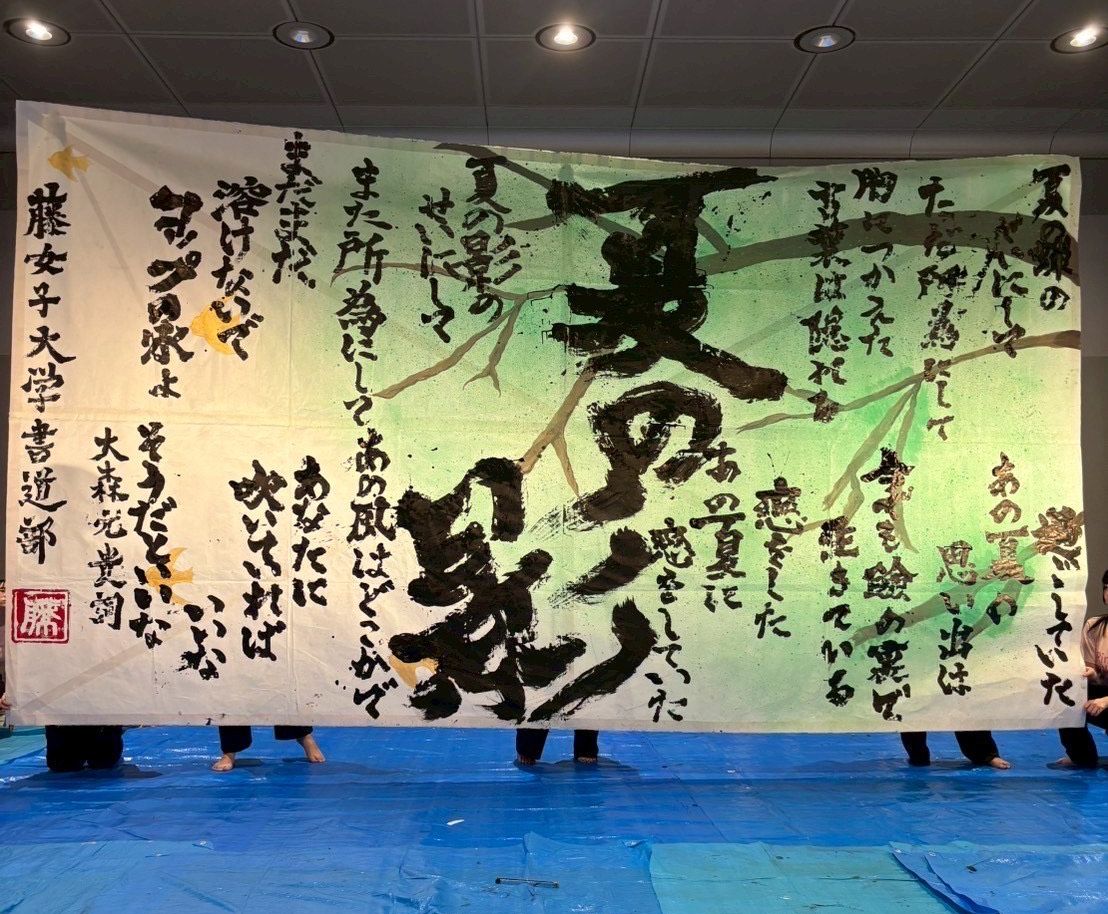 夏の
せいにして
していた
ただ所為にして
あの夏の
思い出は
胸につかえた
言葉は隠れる
今でも瞼の裏で
生きている
恋をした
あの夏に
恋をしていた
夏の影
夏の影の
せいにして
また所為にして
あの風はどこかで
まだまだ、
溶けないで
コップの氷よ
あなたに
吹いていれば
いいな
そうだといいな
大森元貴詞
藤女子大学書道部
藤